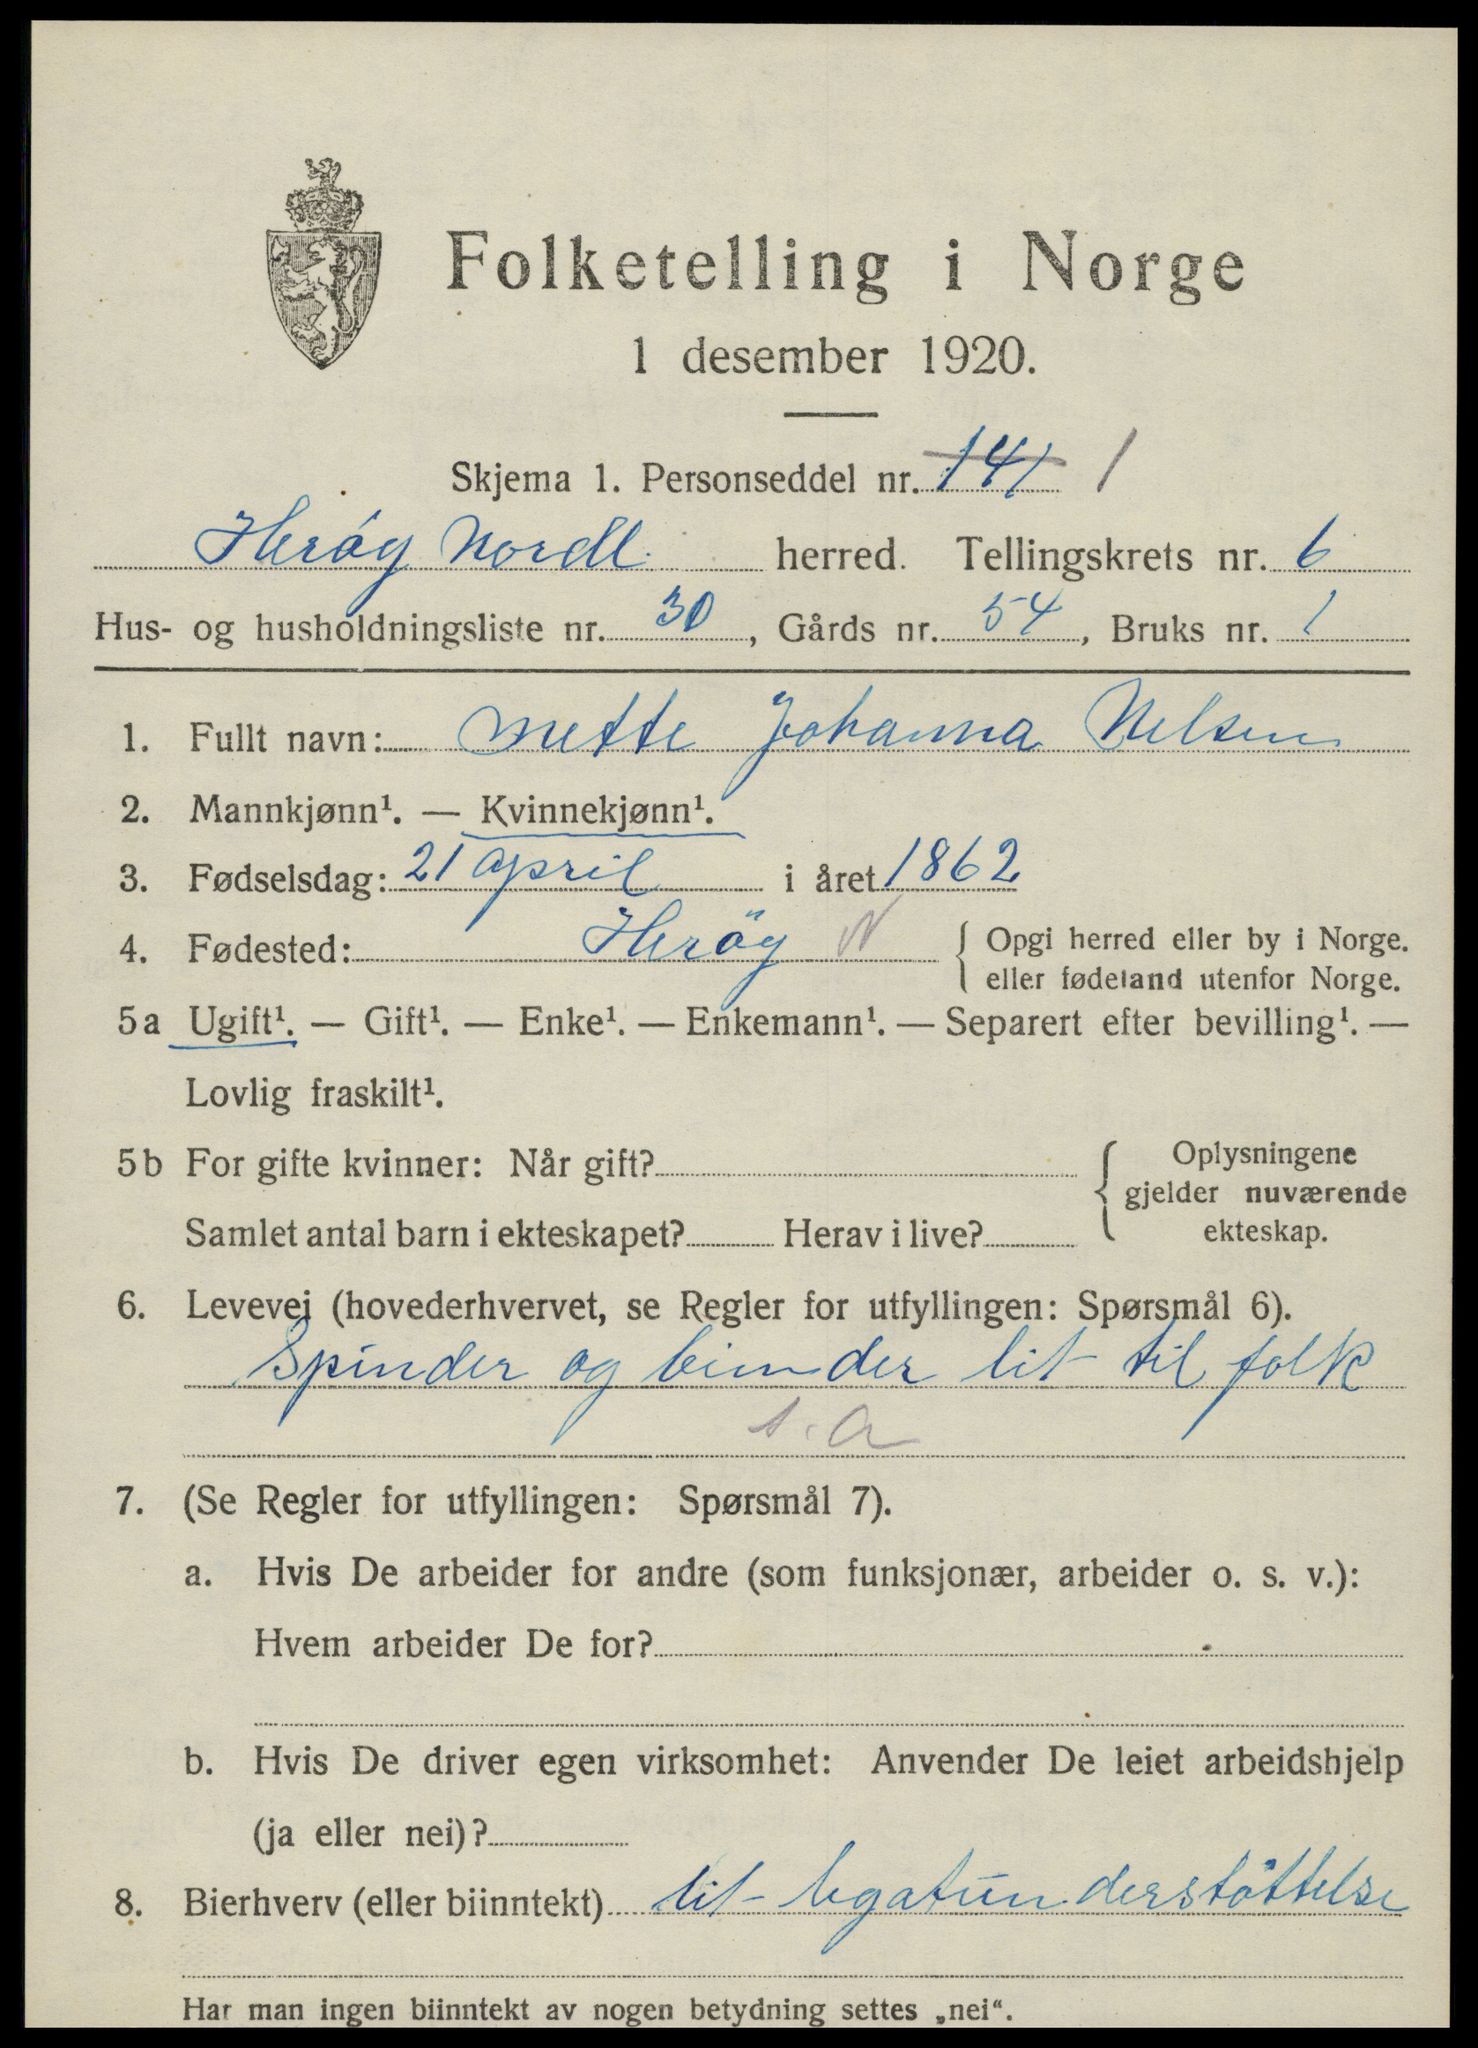 Folketelling i Norge
1 desember 1920.
Skjema 1. Personseddel nr. 141 1
Herøy Nordl. herred. Tellingskrets nr. 6
Hus- og husholdningsliste nr. 30, Gårds nr. 54, Bruks nr. 1
1. Fullt navn: Mette Johanna Nelsen
2. Mannkjønn¹. — Kvinnekjønn¹.
3. Fødselsdag: 21 april i året 1862
4. Fødested: Heröy N { Opgi herred eller by i Norge.
eller fødeland utenfor Norge.
5a Ugift¹. — Gift¹. — Enke¹. — Enkemann¹. — Separert efter bevilling¹. —
Lovlig fraskilt¹.
5b For gifte kvinner: Når gift? { Oplysningene
gjelder nuværende
Samlet antal barn i ekteskapet? Herav i live? ekteskap.
6. Levevei (hovederhvervet, se Regler for utfyllingen: Spørsmål 6).
Spinder og binder lit til folk
s.a
7. (Se Regler for utfyllingen: Spørsmål 7).
a. Hvis De arbeider for andre (som funksjonær, arbeider o. s. v.):
Hvem arbeider De for?
b. Hvis De driver egen virksomhet: Anvender De leiet arbeidshjelp
(ja eller nei)?
8. Bierhverv (eller biinntekt) lit legatunderstöttelse
Har man ingen biinntekt av nogen betydning settes „nei“.